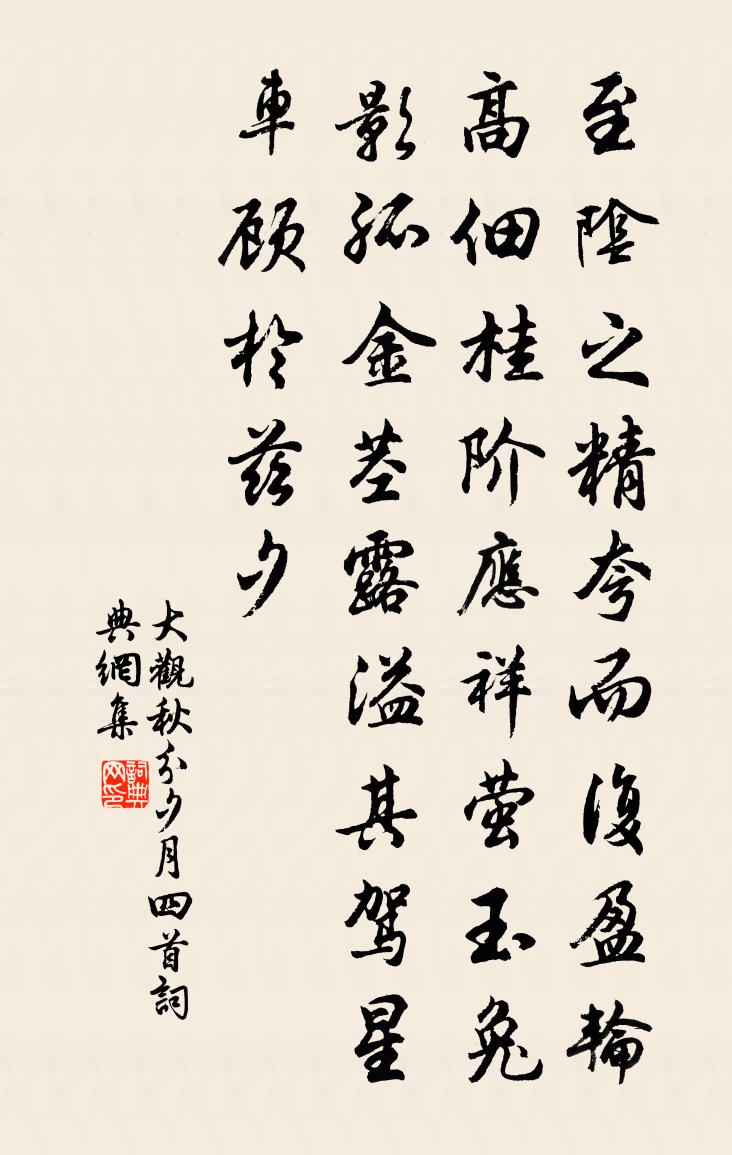 至陰之精夸而復盈輪
高佃桂阶應祥萤玉兔
影孤金茎露溢其驾星
車顾於兹夕
大觀秋分夕月四首詞
典網集
詞典
网印